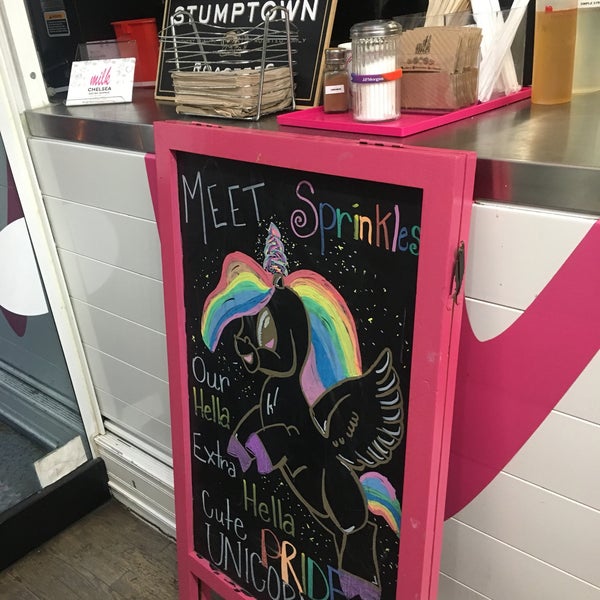 STUMPTOWN
milk
CHELSEA
MEET Sprinkles
Our
Hella
Extra
Hella
Cute
PRIDE